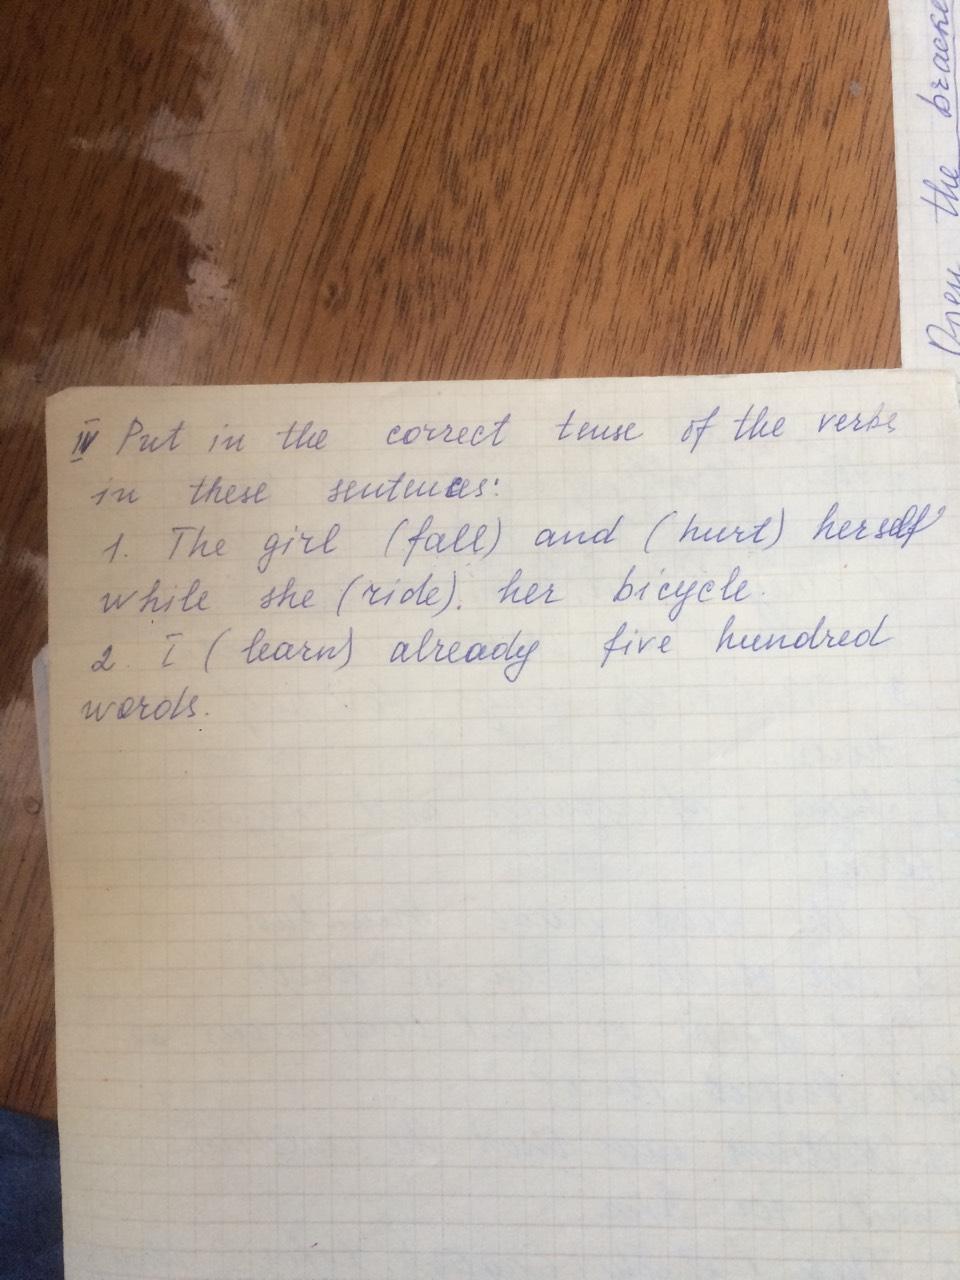 IV Put in the correct tense of the verbs
in these sentences:
1. The girl (fall) and (hurt) herself
while she (ride). her bicycle.
2. I (learn) already five hundred
words.
Open the bracke